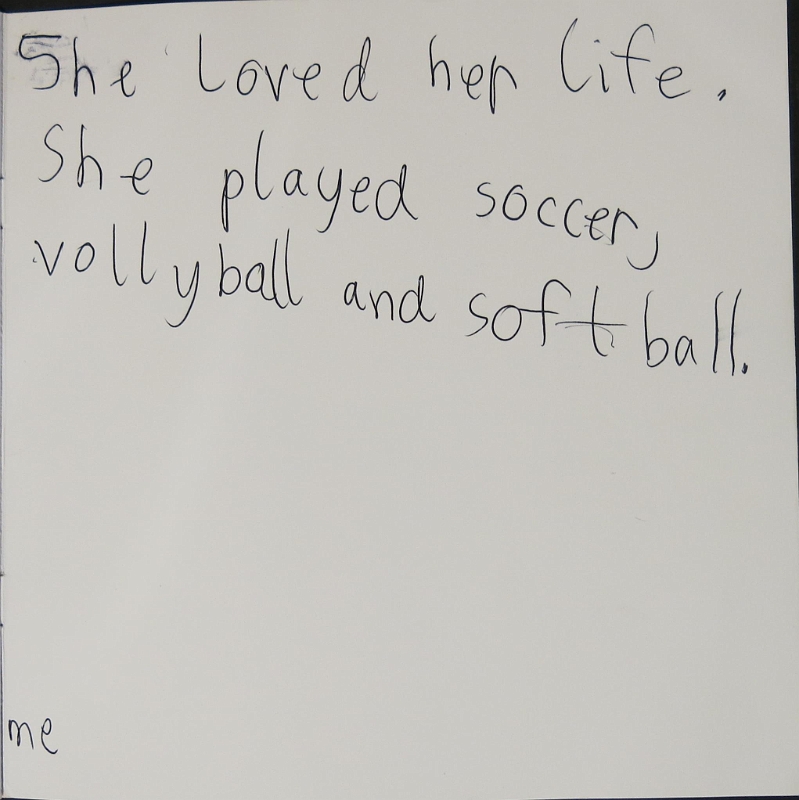 She loved her life.
She played soccer,
vollyball and softball.
me